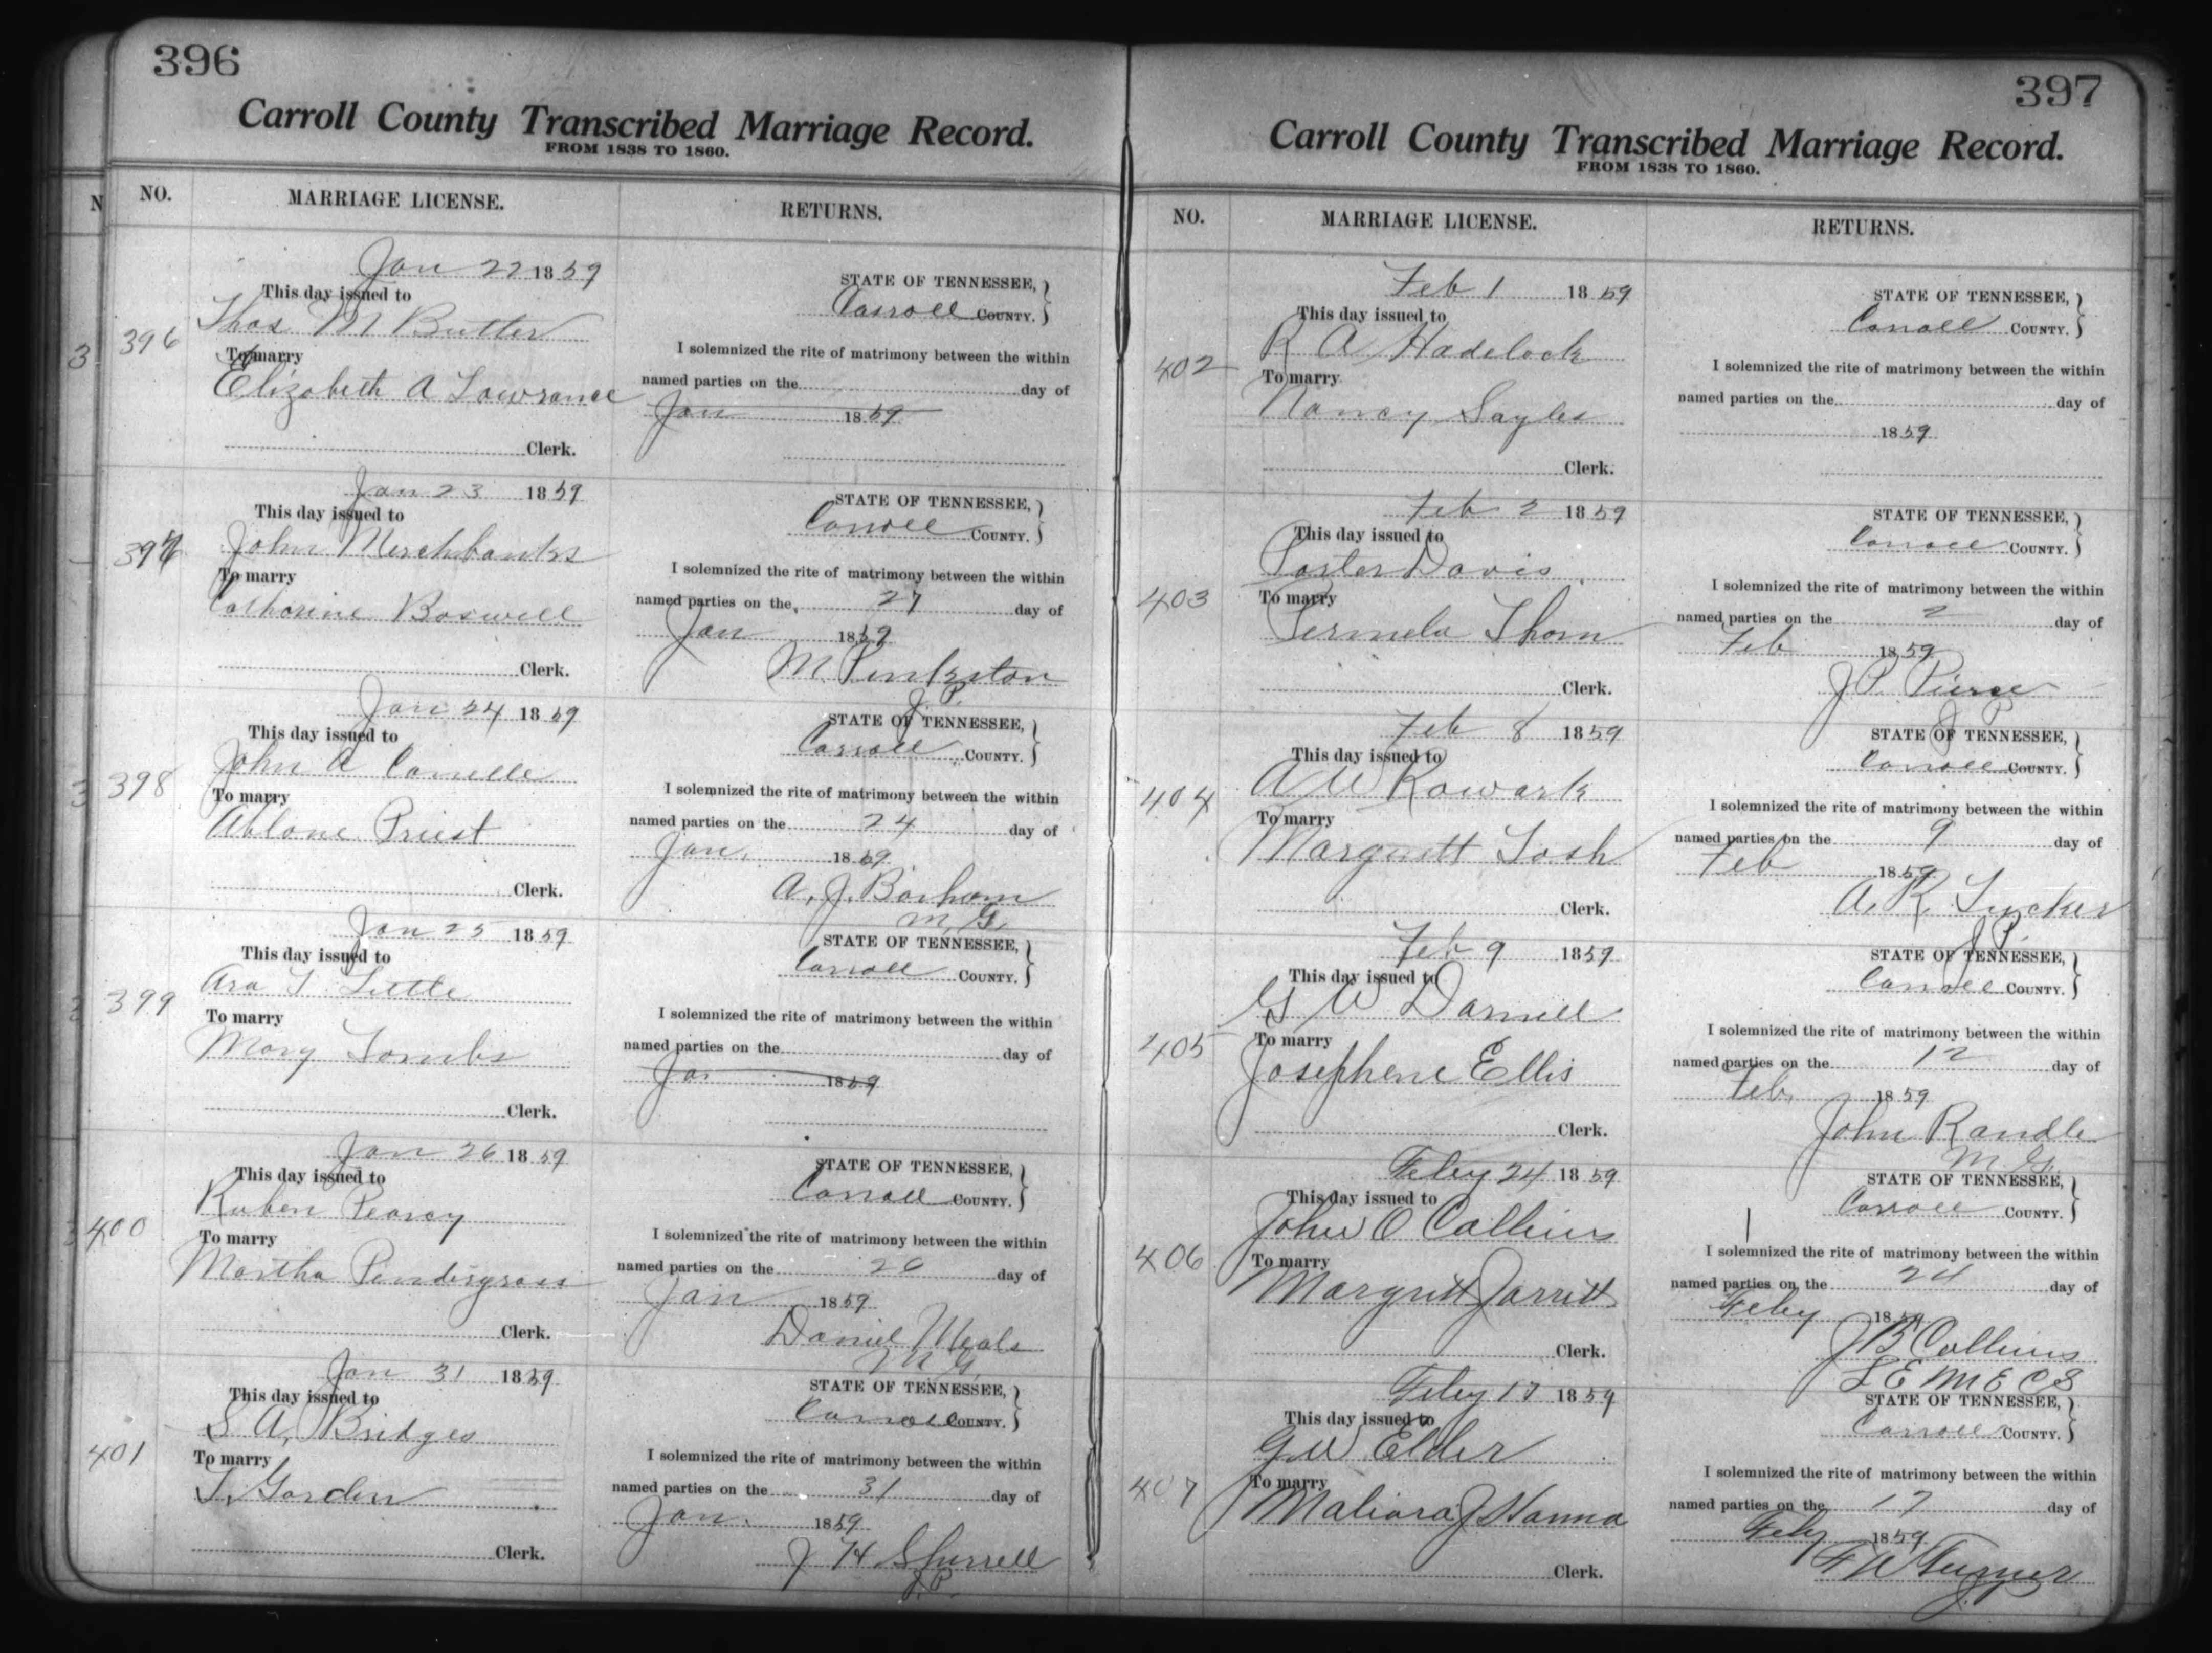 396
Carroll County Transcribed Marriage Record.
FROM 1838 TO 1860.
NO.
MARRIAGE LICENSE.
RETURNS.
396
Jan 22 1859
This day issued to
Thos M Butler
To marry
Elizabeth A Lowrance
Clerk.
STATE OF TENNESSEE,
Carroll COUNTY.
I solemnized the rite of matrimony between the within
named parties on the day of
Jan 1859
397
Jan 23 1859
This day issued to
John Merchbanks
To marry
Catharine Boswell
Clerk.
STATE OF TENNESSEE,
Carroll COUNTY.
I solemnized the rite of matrimony between the within
named parties on the 27 day of
Jan 1859
M. Pinkston
J.P.
398
Jan 24 1859
This day issued to
John A
To marry
Priest
Clerk.
STATE OF TENNESSEE,
Carroll COUNTY.
I solemnized the rite of matrimony between the within
named parties on the 24 day of
Jan. 1859
A. J. Barham
M. G.
399
Jan 25 1859
This day issued to
Asa T. Little
To marry
Mary Tombs
Clerk.
STATE OF TENNESSEE,
Carroll COUNTY.
I solemnized the rite of matrimony between the within
named parties on the day of
Ja. 1859
400
Jan 26 1859
This day issued to
Ruben Pearcy
To marry
Martha Pendergrass
Clerk.
STATE OF TENNESSEE,
Carroll COUNTY.
I solemnized the rite of matrimony between the within
named parties on the 26 day of
Jan 1859
Daniel Meals
M G.
401
Jan 31 1859
This day issued to
S. A. Bridges
To marry
T. Gorden
Clerk.
STATE OF TENNESSEE,
Carroll COUNTY.
I solemnized the rite of matrimony between the within
named parties on the 31 day of
Jan. 1859
J H Spurrell
J.P.
397
Carroll County Transcribed Marriage Record.
FROM 1838 TO 1860.
NO.
MARRIAGE LICENSE.
RETURNS.
402
Feb 1 1859
This day issued to
R A Hadelock
To marry
Nancy Sayles
Clerk.
STATE OF TENNESSEE,
Carroll COUNTY.
I solemnized the rite of matrimony between the within
named parties on the day of
1859
403
Feb 2 1859
This day issued to
Porter Davis
To marry
Thorn
Clerk.
STATE OF TENNESSEE,
Carroll COUNTY.
I solemnized the rite of matrimony between the within
named parties on the 2 day of
Feb 1859
J P. Pierce
J P
404
Feb 8 1859
This day issued to
A W Rowark
To marry
Margrett Tosh
Clerk.
STATE OF TENNESSEE,
Carroll COUNTY.
I solemnized the rite of matrimony between the within
named parties on the 9 day of
Feb 1859
A. R. Tucker
J P.
405
Feb 9 1859
This day issued to
G W Darnell
To marry
Josephene Ellis
Clerk.
STATE OF TENNESSEE,
Carroll COUNTY.
I solemnized the rite of matrimony between the within
named parties on the 12 day of
Feb. 1859
John Randle
M. G.
406
Feby 24 1859
This day issued to
John O Collins
To marry
Margritt Jarritt
Clerk.
STATE OF TENNESSEE,
Carroll COUNTY.
I solemnized the rite of matrimony between the within
named parties on the 24 day of
Feby 1859
J B Collins
L E M E C S
407
Feby 17 1859
This day issued to
G W Elder
To marry
J Hanna
Clerk.
STATE OF TENNESSEE,
Carroll COUNTY.
I solemnized the rite of matrimony between the within
named parties on the 17 day of
Feby 1859